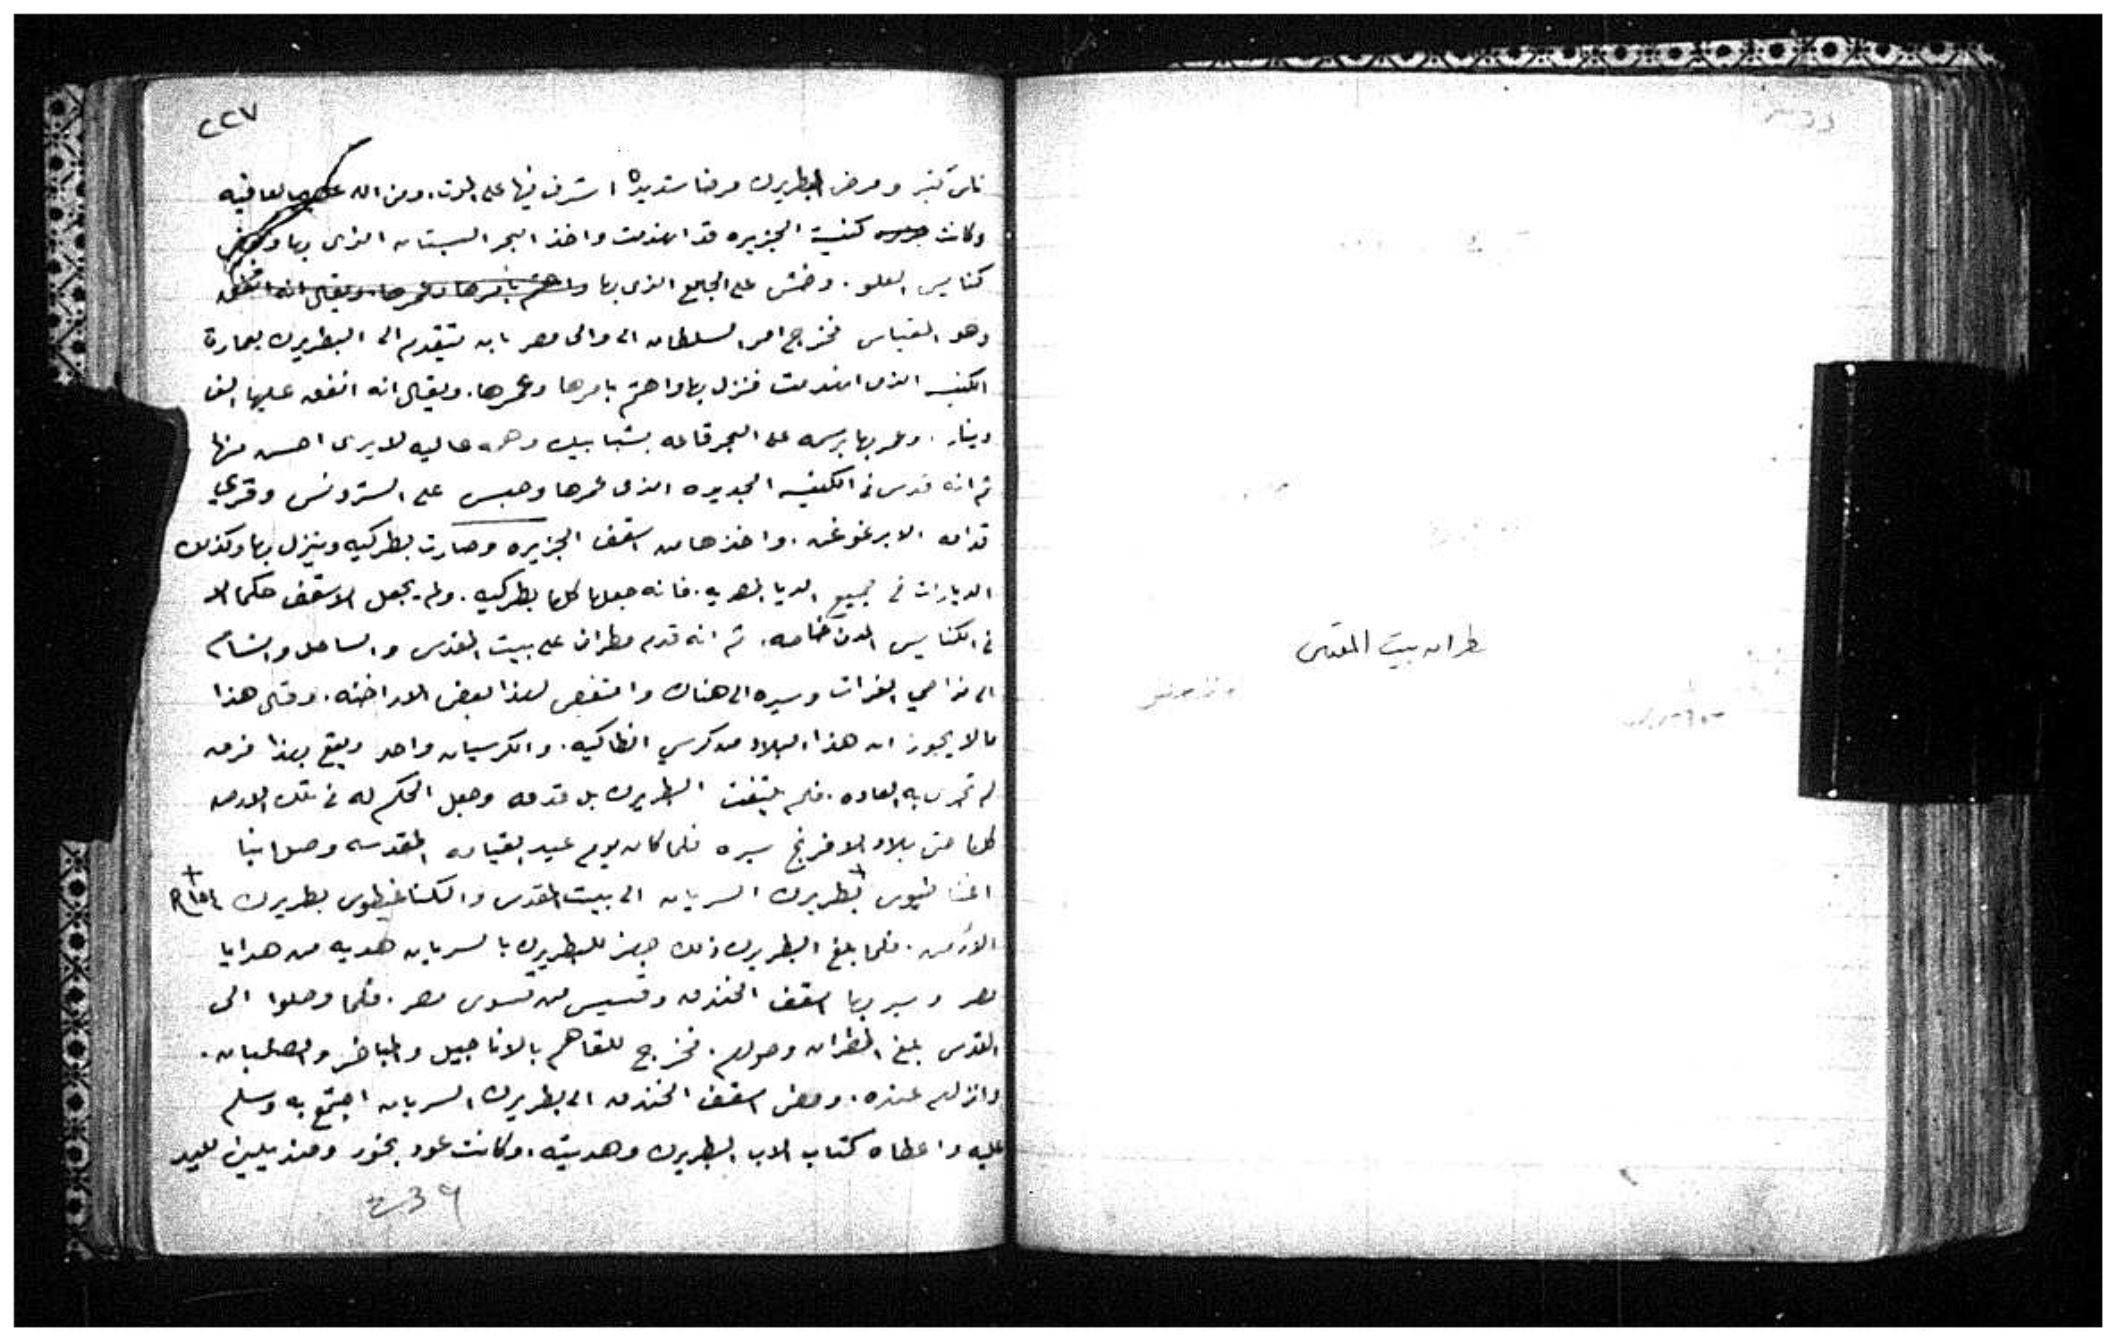 ٢٢٧
ناس كثير ومرض البطريرك مرضا شديدا اشرف فيها على الموت. ومن الله عليه بالعافيه
وكانت كنيسة الجزيره قد انهدمت واخذ البحر البستان الذى بها و
كنايس العلو. وخشى على الجامع الذى بها واهتم بامرها وعمرها. ويقال انه انفق
وهو المقياس فخرج امر السلطان الى والى مصر بان يتقدم الى البطريرك بعمارة
الكنيسه الذى انهدمت فنزل بها واهتم بامرها وعمرها. ويقال انه انفق عليها الف
دينار. وعمر بها برسمه على البحر قاعه بشبابيك وهى عاليه لا يرى احسن منها
ثم انه قدس فى الكنيسه الجديده الذى عمرها وجلس على السترونس وقري
قدامه الابرغوغن. واخذها من اسقف الجزيره وصارت بطركيه وينزل بها وكذلك
الديارات فى جميع الديار المصريه. فانه جعلها كلها بطركيه. ولم يجعل لاسقف حكما الا
فى الكنايس المدن خاصه. ثم انه قدم مطران على بيت المقدس والساحل والشام
الى نواحي الفرات وسيره الى هناك وامتغص لهذا بعض الاراخنه. وقالوا هذا
ما لا يجوز ان هذا البلاد من كرسي انطاكيه. والكرسيان واحد ويقع بهذا فرقه
لم تجرى به العاده. فلم يلتفت البطريرك بل قدمه وجعل الحكم له فى تلك الارض
كلها حتى بلاد الافرنج سيره فلما كان يوم عيد القيامه المقدسه وصل انبا
اغناطيوس بطريرك السريان الى بيت المقدس والكساغيطوس بطريرك
الارمن. فلما بلغ البطريرك ذلك جهز للبطريرك بالسريان هديه من هدايا
مصر وسير بها اسقف الخندق وقسيس من قسوس مصر. فلما وصلوا الى
القدس بلغ المطران وصولهم. فخرج للقاهم بالاناجيل والمباخر والصلبان.
وانزلهم عنده. ومضى اسقف الخندق الى بطريرك السريان اجتمع به وسلم
عليه واعطاه كتاب الاب البطريرك وهديته. وكانت عود بخور ومنديلين لليد
مطران بيت المقدس